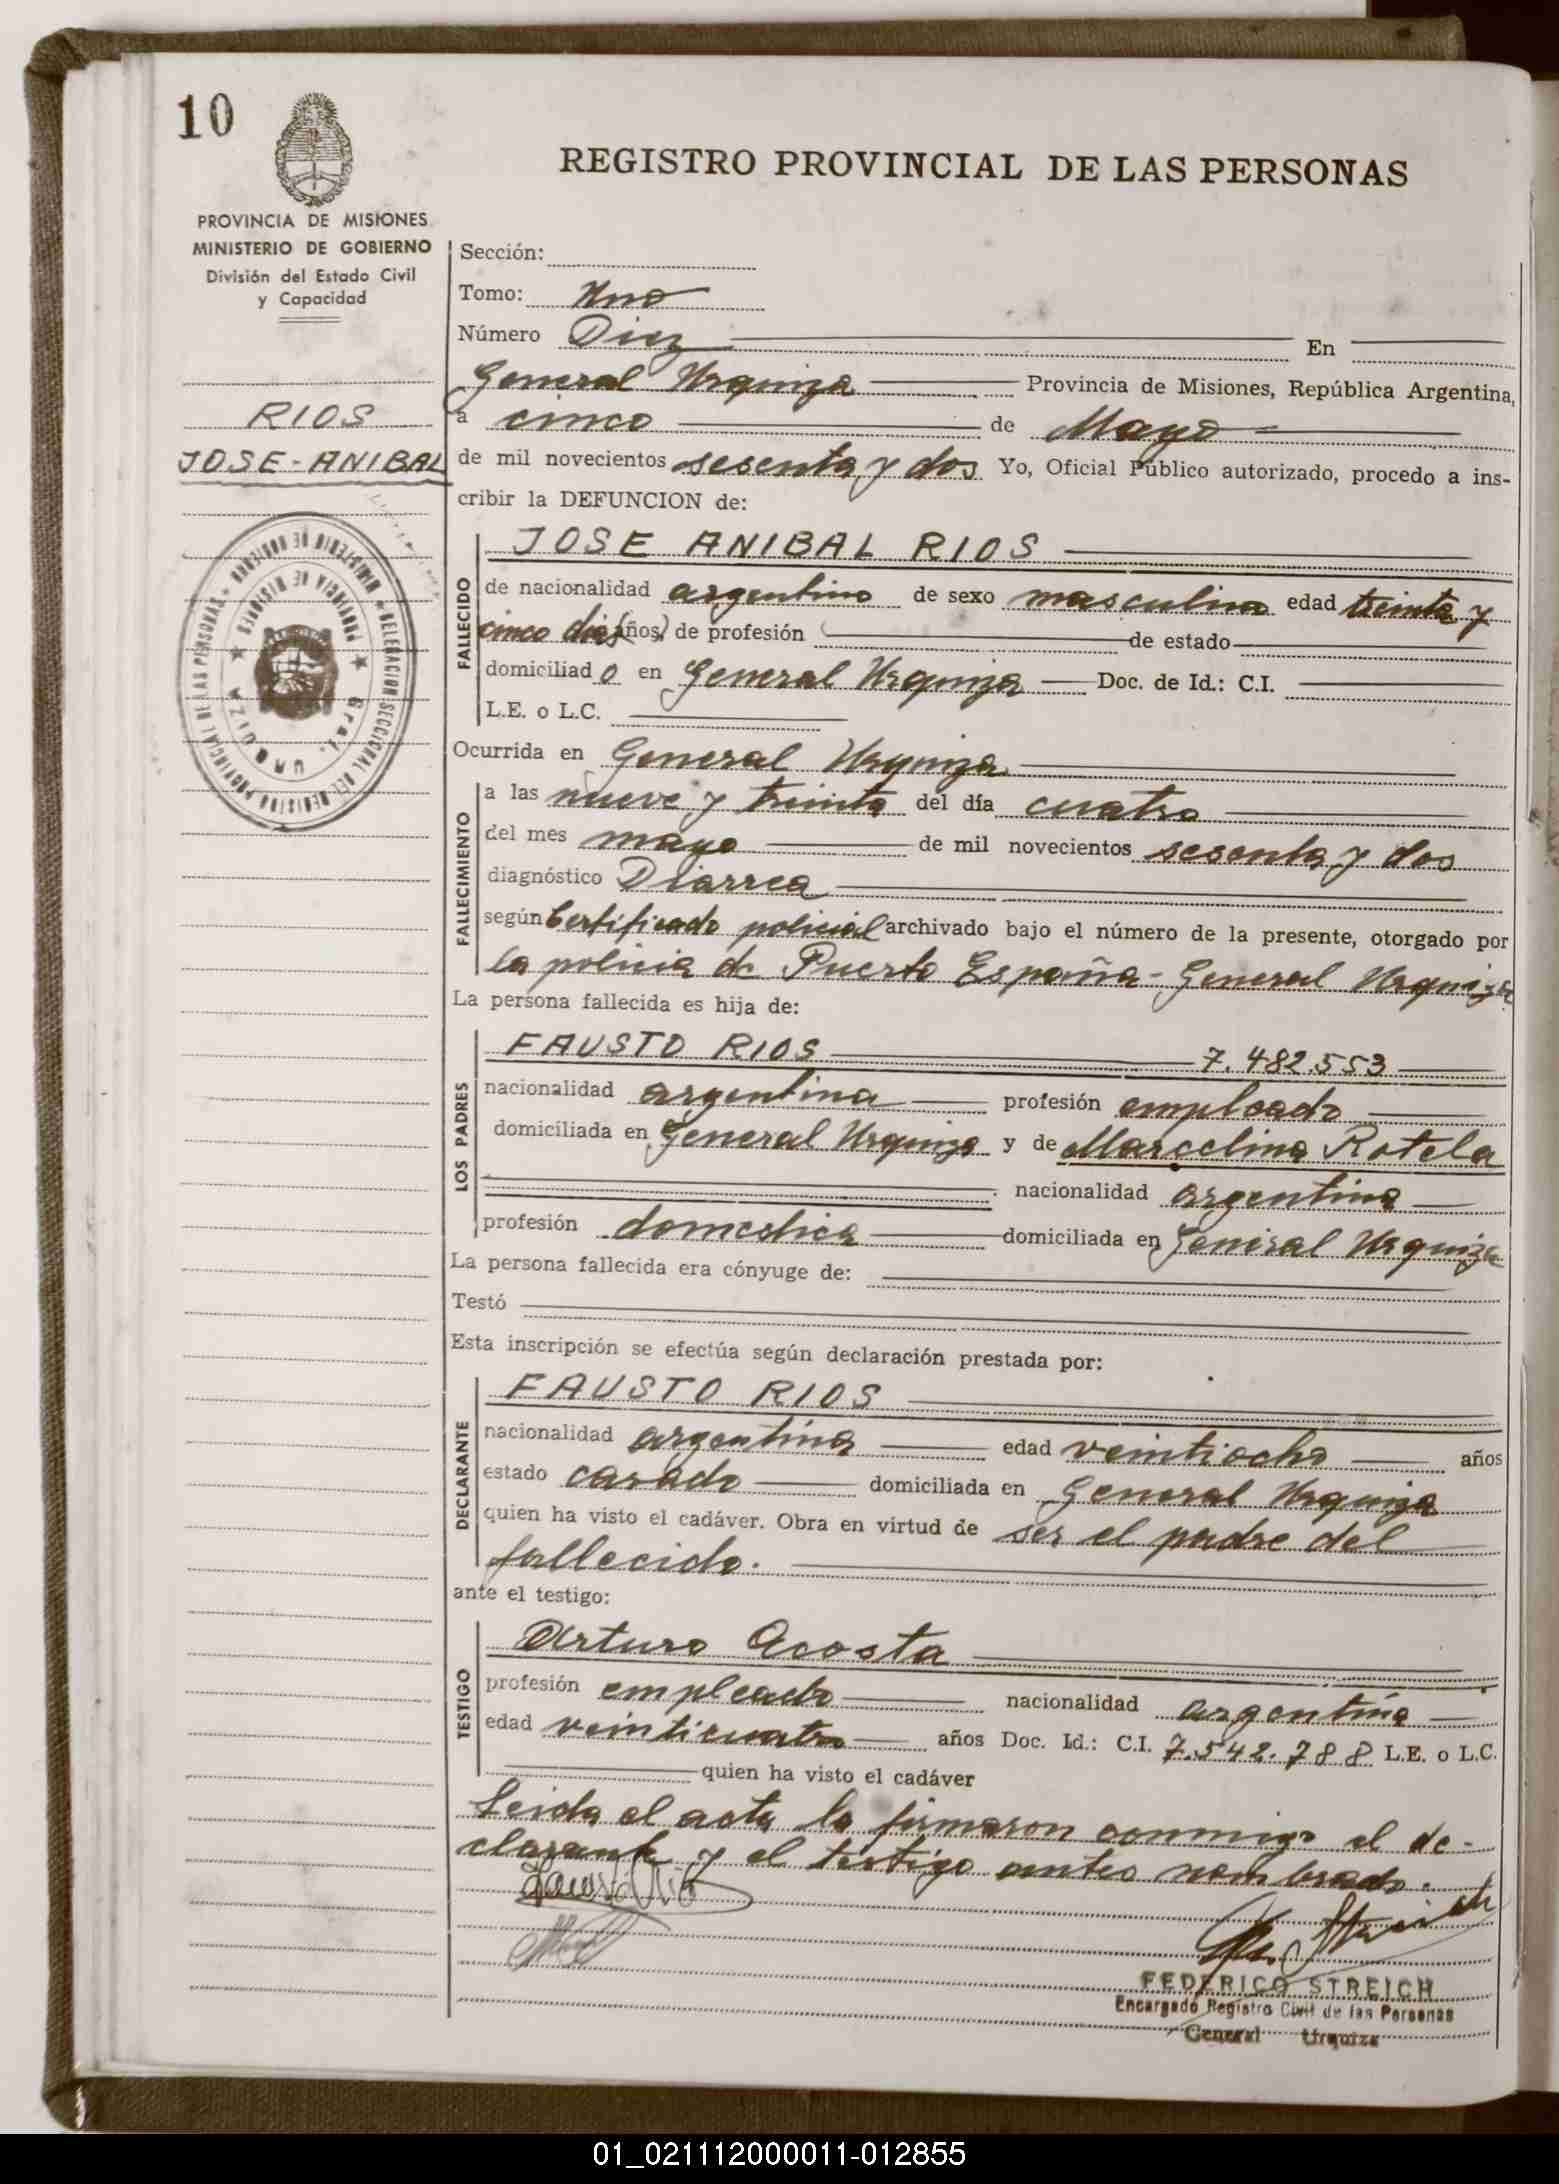 10
REGISTRO PROVINCIAL DE LAS PERSONAS
PROVINCIA DE MISIONES
MINISTERIO DE GOBIERNO
División del Estado Civil
y Capacidad
RIOS
JOSE-ANIBAL
Sección:
Tomo: Uno
Número Diez En
General Urquiza Provincia de Misiones, República Argentina,
a cinco de Mayo
de mil novecientos sesenta y dos Yo, Oficial Público autorizado, procedo a ins-
cribir la DEFUNCION de:
FALLECIDO
JOSE ANIBAL RIOS
de nacionalidad argentino de sexo masculino edad treinta y
cinco dias (años) de profesión de estado
domiciliado en General Urquiza Doc. de Id.: C.I.
L.E. o L.C.
Ocurrida en General Urquiza
FALLECIMIENTO
a las nueve y treinta del día cuatro
del mes mayo de mil novecientos sesenta y dos
diagnóstico Diarrea
según Certificado policial archivado bajo el número de la presente, otorgado por
la policia de Puerto España - General Urquiza
La persona fallecida es hija de:
LOS PADRES
FAUSTO RIOS 7.482.553
nacionalidad argentina profesión empleado
domiciliada en General Urquiza y de Marcelina Rotela
nacionalidad argentina
profesión domestica domiciliada en General Urquiza
La persona fallecida era cónyuge de:
Testó
Esta inscripción se efectúa según declaración prestada por:
DECLARANTE
FAUSTO RIOS
nacionalidad argentina edad veintiocho años
estado casado domiciliada en General Urquiza
quien ha visto el cadáver. Obra en virtud de ser el padre del
fallecido.
ante el testigo:
TESTIGO
Arturo Acosta
profesión empleado nacionalidad argentina
edad veinticuatro años Doc. Id.: C.I. 7.542.788 L.E. o L.C.
quien ha visto el cadáver
Leida el acta la firmaron conmigo el de-
clarante y el testigo antes nombrado.
FEDERICO STREICH
Encargado Registro Civil de las Personas
General Urquiza
01_021112000011-012855